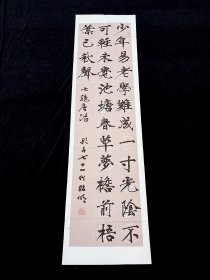 少年易老學難成一寸光陰不
可輕未覺池塘春草夢楷前梧
葉已秋聲
七絕唐詩